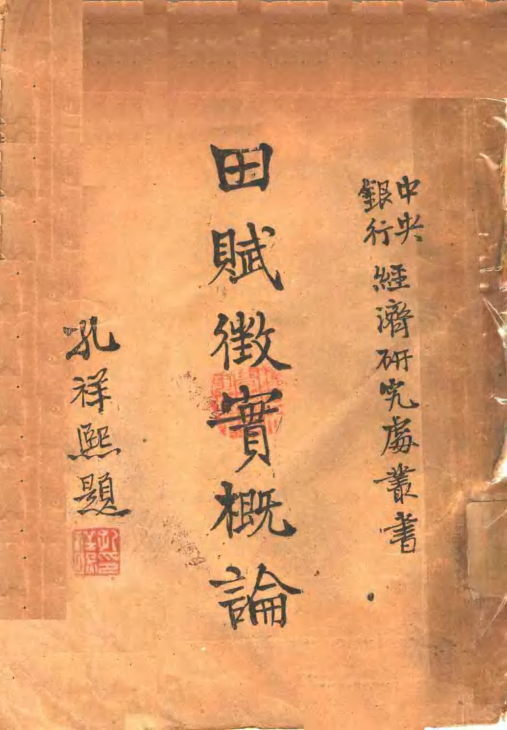 中央銀行經濟研究處叢書
田賦徵實概論
孔祥熙題